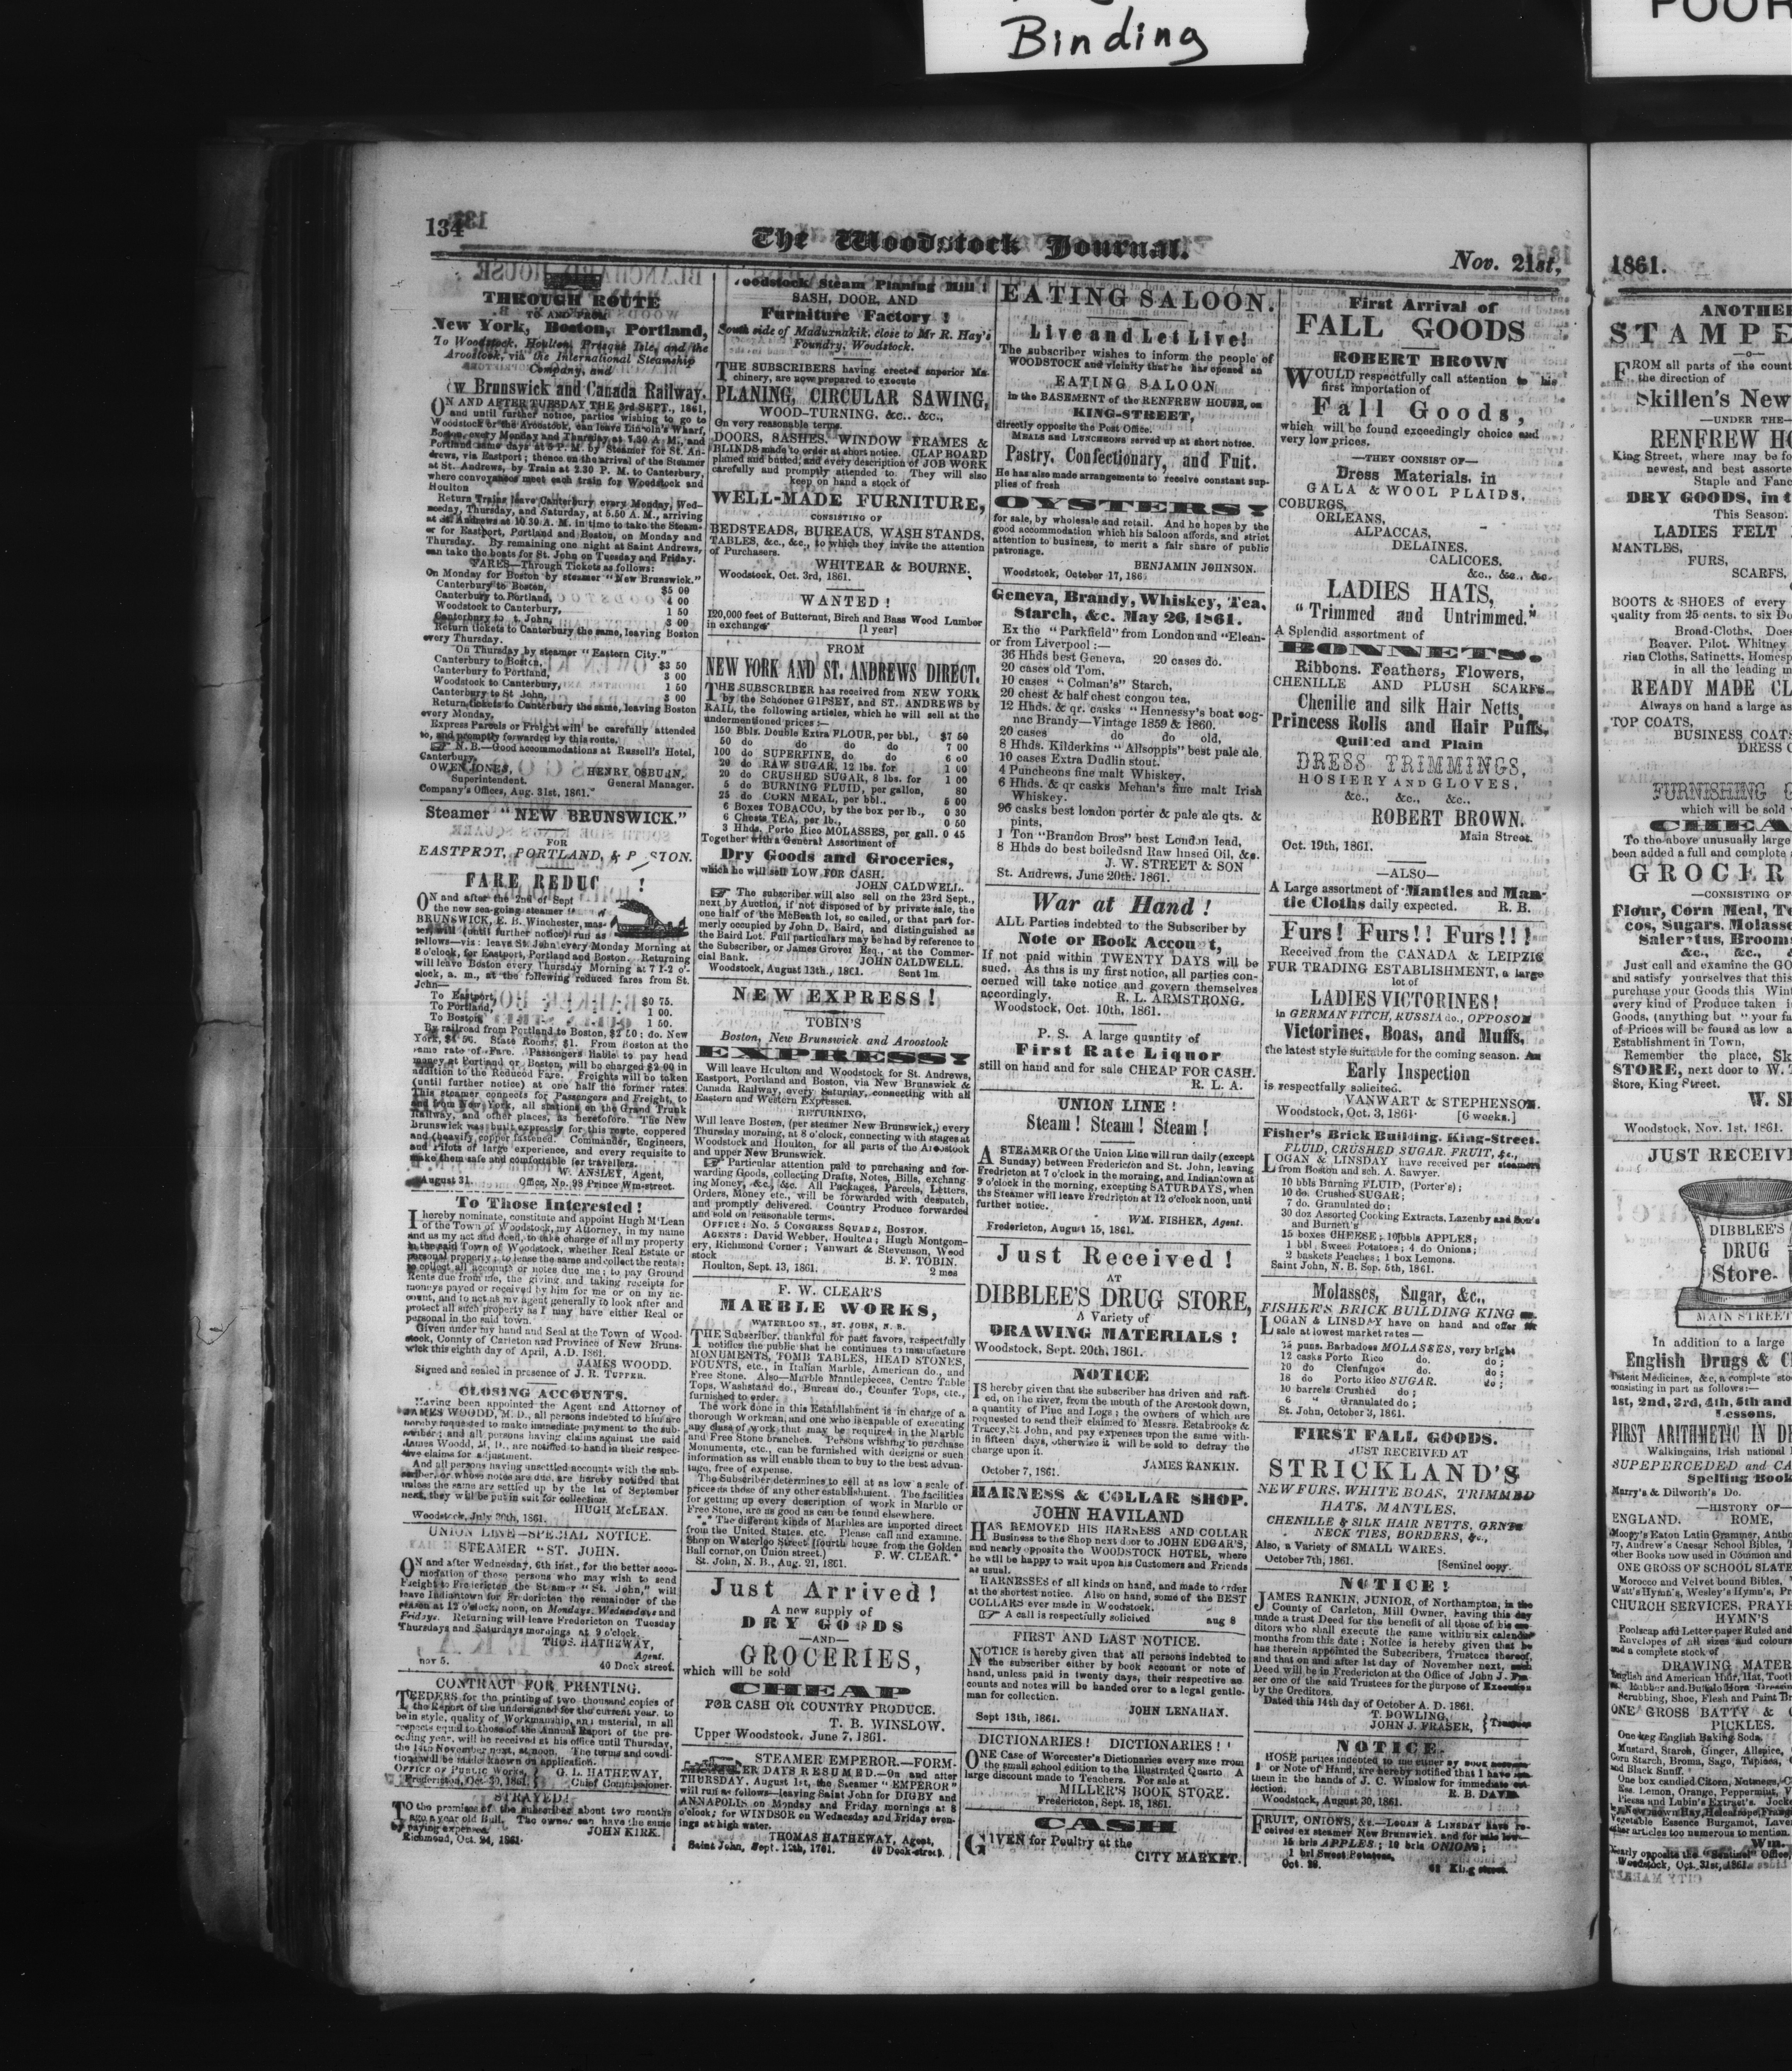 Binding
POOR
134
The Woodstock Journal.
Nov. 21st,
THROUGH ROUTE
TO AND FROM
New York, Boston, Portland,
To Woodstock, Houlton, Presque Isle, and the
Aroostook, via the International Steamship
Company, and
w Brunswick and Canada Railway.
ON AND AFTER TUESDAY THE 3rd SEPT., 1861,
and until further notice, parties wishing to go to
Woodstock or the Aroostook, can leave Lincoln's Wharf,
Boston, every Monday and Thursday at 7.30 A. M., and
Portland same days at 5 P. M. by Steamer for St. An-
drews, via Eastport; thence on the arrival of the Steamer
at St. Andrews, by Train at 2.30 P. M. to Canterbury,
where conveyances meet each train for Woodstock and
Houlton
Return Trains leave Canterbury every Monday, Wed-
nesday, Thursday, and Saturday, at 5.50 A. M., arriving
at St. Andrews at 10 30 A. M. in time to take the Steam-
er for Eastport, Portland and Boston, on Monday and
Thursday. By remaining one night at Saint Andrews,
can take the boats for St. John on Tuesday and Friday.
FARES—Through Tickets as follows:
On Monday for Boston by steamer "New Brunswick."
Canterbury to Boston, $5 00
Canterbury to Portland, 4 00
Woodstock to Canterbury, 1 50
Canterbury to t. John, 3 00
Return tickets to Canterbury the same, leaving Boston
every Thursday.
On Thursday by steamer "Eastern City."
Canterbury to Boston, $3 50
Canterbury to Portland, 3 00
Woodstock to Canterbury, 1 50
Canterbury to St John, 3 00
Return tickets to Canterbury the same, leaving Boston
every Monday.
Express Parcels or Freight will be carefully attended
to, and promptly forwarded by this route.
☞ N. B.—Good accommodations at Russell's Hotel,
Canterbury.
OWEN JONES, HENRY OSBURN,
Superintendent. General Manager.
Company's Offices, Aug. 31st, 1861.
Steamer "NEW BRUNSWICK."
FOR
EASTPORT, PORTLAND, & STON.
FARE REDUC !
ON and after the 2nd of Sept
the new sea-going steamer
BRUNSWICK, E. B. Winchester, mas-
ter, will (until further notice) run as
follows—viz: leave St. John every Monday Morning at
8 o'clock, for Eastport, Portland and Boston. Returning
will leave Boston every Thursday Morning at 7 1-2 o'-
clock, a. m., at the following reduced fares from St.
John—
To Eastport, $0 75.
To Portland, 1 00.
To Boston, 1 50.
By railroad from Portland to Boston, $2 50: do. New
York, State Rooms, $1. From Boston at the
same rate of Fare. Passengers liable to pay head
money at Portland or Boston, will be charged $2 00 in
addition to the Reduced Fare. Freights will be taken
(until further notice) at one half the former rates.
This steamer connects for Passengers and Freight, to
and from New York, all stations on the Grand Trunk
Railway, and other places, as heretofore. The New
Brunswick was built expressly for this route, coppered
and (heavily) copper fastened. Commander, Engineers,
and Pilots of large experience, and every requisite to
make them safe and comfortable for travellers.
W. ANSLEY, Agent,
August 31. Office, No. 98 Prince Wm-street.
To Those Interested!
I hereby nominate, constitute and appoint Hugh M'Lean
of the Town of Woodstock, my Attorney, in my name
and as my act and deed, to take charge of all my property
in the said Town of Woodstock, whether Real Estate or
personal property; to lease the same and collect the rents;
to collect all accounts or notes due me; to pay Ground
Rents due from me, the giving and taking receipts for
moneys payed or received by him for me or on my ac-
count, and to act as my agent generally to look after and
protect all such property as I may have either Real or
personal in the said town.
Given under my hand and Seal at the Town of Wood-
stock, County of Carleton and Province of New Bruns-
wick this eighth day of April, A.D. 1861.
JAMES WOODD.
Signed and sealed in presence of J. R. TUPPER.
CLOSING ACCOUNTS.
Having been appointed the Agent and Attorney of
JAMES WOODD, M. D., all persons indebted to him are
hereby requested to make immediate payment to the sub-
scriber; and all persons having claims against the said
James Woodd, M. D., are notified to hand in their respec-
tive claims for adjustment.
And all persons having unsettled accounts with the sub-
scriber, or whose notes are due, are hereby notified that
unless the same are settled up by the 1st of September
next, they will be put in suit for collection.
HUGH McLEAN.
Woodstock, July 20th, 1861.
UNION LINE—SPECIAL NOTICE.
STEAMER "ST. JOHN.
ON and after Wednesday, 6th inst., for the better acco-
modation of those persons who may wish to send
Freight to Fredericton the Steamer "St. John," will
leave Indiantown for Fredericton the remainder of the
season at 12 o'clock, noon, on Mondays, Wednesdays and
Fridays. Returning will leave Fredericton on Tuesday
Thursdays and Saturdays mornings at 9 o'clock.
THOS. HATHEWAY,
Agent.
nov 5. 40 Dock street.
CONTRACT FOR PRINTING.
TEEDERS for the printing of two thousand copies of
the Report of the undersigned for the current year, to
be in style, quality of Workmanship, and material, in all
respects equal to those of the Annual Report of the pre-
ceding year, will be received at his office until Thursday,
the 14th November next, at noon. The terms and condi-
tions will be made known on application.
OFFICE OF PUBLIC WORKS, G. L. HATHEWAY,
Fredericton, Oct. 30, 1861. Chief Commissioner.
STRAYED!
TO the premises of the subscriber about two months
ago a year old Bull. The owner can have the same
by paying expenses.
JOHN KIRK.
Richmond, Oct. 24, 1861.
oodstock Steam Planing Mill!
SASH, DOOR, AND
Furniture Factory!
South side of Maduxnakik, close to Mr R. Hay's
Foundry, Woodstock.
THE SUBSCRIBERS having erected superior Ma-
chinery, are now prepared to execute
PLANING, CIRCULAR SAWING,
WOOD-TURNING, &c., &c.,
On very reasonable terms.
DOORS, SASHES, WINDOW FRAMES &
BLINDS made to order at short notice. CLAP BOARD
planed and butted, and every description of JOB WORK
carefully and promptly attended to. They will also
keep on hand a stock of
WELL-MADE FURNITURE,
CONSISTING OF
BEDSTEADS, BUREAUS, WASH STANDS,
TABLES, &c., &c., to which they invite the attention
of Purchasers.
WHITEAR & BOURNE.
Woodstock, Oct. 3rd, 1861.
WANTED!
120,000 feet of Butternut, Birch and Bass Wood Lumber
in exchange [1 year]
FROM
NEW YORK AND ST. ANDREWS DIRECT.
THE SUBSCRIBER has received from NEW YORK
by the Schooner GIPSEY, and ST. ANDREWS by
RAIL, the following articles, which he will sell at the
undermentioned prices:—
150 Bbls. Double Extra FLOUR, per bbl., $7 50
50 do do do do 7 00
100 do SUPERFINE, do do 6 00
20 do RAW SUGAR, 12 lbs. for 1 00
20 do CRUSHED SUGAR, 8 lbs. for 1 00
5 do BURNING FLUID, per gallon, 80
25 do CORN MEAL, per bbl., 5 00
6 Boxes TOBACCO, by the box per lb., 0 30
6 Chests TEA, per lb., 0 50
3 Hhds. Porto Rico MOLASSES, per gall. 0 45
Together with a General Assortment of
Dry Goods and Groceries,
which he will sell LOW FOR CASH.
JOHN CALDWELL.
☞ The subscriber will also sell on the 23rd Sept.,
next by Auction, if not disposed of by private sale, the
one half of the McBeath lot, so called, or that part for-
merly occupied by John D. Baird, and distinguished as
the Baird Lot. Full particulars may be had by reference to
the Subscriber, or James Grover Esq., at the Commer-
cial Bank. JOHN CALDWELL.
Woodstock, August 13th., 1861. Sent 1m
NEW EXPRESS!
TOBIN'S
Boston, New Brunswick and Aroostook
EXPRESS
Will leave Houlton and Woodstock for St. Andrews,
Eastport, Portland and Boston, via New Brunswick &
Canada Railway, every Saturday, connecting with all
Eastern and Western Expresses.
RETURNING,
Will leave Boston, (per steamer New Brunswick,) every
Thursday morning, at 8 o'clock, connecting with stages at
Woodstock and Houlton, for all parts of the Aroostook
and upper New Brunswick.
☞ Particular attention paid to purchasing and for-
warding Goods, collecting Drafts, Notes, Bills, exchang-
ing Money, &c., &c. All Packages, Parcels, Letters,
Orders, Money etc., will be forwarded with despatch,
and promptly delivered. Country Produce forwarded
and sold on reasonable terms.
OFFICE: NO. 5 CONGRESS SQUARE, BOSTON.
AGENTS: David Webber, Houlton; Hugh Montgom-
ery, Richmond Corner; Vanwart & Stevenson, Wood
stock B. F. TOBIN.
Houlton, Sept. 13, 1861. 2 mos
F. W. CLEAR'S
MARBLE WORKS,
WATERLOO ST., ST. JOHN, N. B.
THE Subscriber, thankful for past favors, respectfully
notifies the public that he continues to manufacture
MONUMENTS, TOMB TABLES, HEAD STONES,
FOUNTS, etc., in Italian Marble, American do., and
Free Stone. Also—Marble Mantlepieces, Centre Table
Tops, Washstand do., Bureau do., Counter Tops, etc.,
furnished to order.
The work done in this Establishment is in charge of a
thorough Workman, and one who is capable of executing
any class of work that may be required in the Marble
and Free Stone branches. Persons wishing to purchase
Monuments, etc., can be furnished with designs or such
information as will enable them to buy to the best advan-
tage, free of expense.
The Subscriber determines to sell at as low a scale of
prices as those of any other establishment. The facilities
for getting up every description of work in Marble or
Free Stone, are as good as can be found elsewhere.
The different kinds of Marbles are imported direct
from the United States, etc. Please call and examine.
Shop on Waterloo Street [fourth house from the Golden
Ball corner, on Union street.) F. W. CLEAR.
St. John, N. B., Aug. 21, 1861.
Just Arrived!
A new supply of
DRY GOODS
—AND—
GROCERIES,
which will be sold
CHEAP
FOR CASH OR COUNTRY PRODUCE.
T. B. WINSLOW.
Upper Woodstock, June 7, 1861.
STEAMER EMPEROR.—FORM-
ER DAYS RESUMED.—On and after
THURSDAY, August 1st, the Steamer "EMPEROR"
will run as follows—leaving Saint John for DIGBY and
ANNAPOLIS on Monday and Friday mornings at 8
o'clock; for WINDSOR on Wednesday and Friday even-
ings at high water.
THOMAS HATHEWAY, Agent,
Saint John, Sept. 12th, 1761. 40 Dock-street.
EATING SALOON.
Live and Let Live!
The subscriber wishes to inform the people of
WOODSTOCK and vicinity that he has opened an
EATING SALOON
in the BASEMENT of the RENFREW HOUSE, on
KING-STREET,
directly opposite the Post Office.
MEALS and LUNCHEONS served up at short notice.
Pastry, Confectionary, and Fuit.
He has also made arrangements to receive constant sup-
plies of fresh
OYSTERS
for sale, by wholesale and retail. And he hopes by the
good accommodation which his Saloon affords, and strict
attention to business, to merit a fair share of public
patronage.
BENJAMIN JOHNSON.
Woodstock, October 17, 186
Geneva, Brandy, Whiskey, Tea,
Starch, &c. May 26, 1861.
Ex the "Parkfield" from London and "Elean-
or from Liverpool:—
36 Hhds best Geneva, 20 cases do.
20 cases old Tom,
10 cases "Colman's" Starch,
20 chest & half chest congou tea,
12 Hhds. & qr. casks "Hennessy's boat cog-
nac Brandy—Vintage 1859 & 1860.
20 cases do do old,
8 Hhds. Kilderkins "Allsoppis" best pale ale.
10 cases Extra Dudlin stout.
4 Puncheons fine malt Whiskey,
6 Hhds. & qr casks Mehan's fine malt Irish
Whiskey.
96 casks best london porter & pale ale qts. &
pints,
1 Ton "Brandon Bros" best London lead,
8 Hhds do best boiledand Raw linsed Oil, &c.
J. W. STREET & SON
St. Andrews, June 20th. 1861.
War at Hand!
ALL Parties indebted to the Subscriber by
Note or Book Account,
If not paid within TWENTY DAYS will be
sued. As this is my first notice, all parties con-
cerned will take notice and govern themselves
accordingly. R. L. ARMSTRONG.
Woodstock, Oct. 10th, 1861.
P. S. A large quantity of
First Rate Liquor
still on hand and for sale CHEAP FOR CASH.
R. L. A.
UNION LINE!
Steam! Steam! Steam!
A STEAMER Of the Union Line will run daily (except
Sunday) between Fredericton and St. John, leaving
Fredricton at 7 o'clock in the morning, and Indiantown at
9 o'clock in the morning, excepting SATURDAYS, when
ths Steamer will leave Fredricton at 12 o'clock noon, until
further notice.
WM. FISHER, Agent.
Fredericton, August 15, 1861.
Just Received!
AT
DIBBLEE'S DRUG STORE,
A Variety of
DRAWING MATERIALS!
Woodstock, Sept. 20th, 1861.
NOTICE
IS hereby given that the subscriber has driven and raft-
ed, on the river, from the mouth of the Arostook down,
a quantity of Pine and Logs; the owners of which are
requested to send their claimed to Messrs. Estabrooks &
Tracey, St. John, and pay expenses upon the same with-
in fifteen days, otherwise it will be sold to defray the
charge upon it.
JAMES RANKIN.
October 7, 1861.
HARNESS & COLLAR SHOP.
JOHN HAVILAND
HAS REMOVED HIS HARNESS AND COLLAR
Business to the Shop next door to JOHN EDGAR'S,
and nearly opposite the WOODSTOCK HOTEL, where
he will be happy to wait upon his Customers and Friends
as usual.
HARNESSES of all kinds on hand, and made to order
at the shortest notice. Also on hand, some of the BEST
COLLARS ever made in Woodstock.
☞ A call is respectfully solicited aug 8
FIRST AND LAST NOTICE.
NOTICE is hereby given that all persons indebted to
the subscriber either by book account or note of
hand, unless paid in twenty days, their respective ac
counts and notes will be handed over to a legal gentle-
man for collection.
JOHN LENAHAN.
Sept 13th, 1861.
DICTIONARIES! DICTIONARIES!
ONE Case of Worcester's Dictionaries every size from
the small school edition to the Illustrated Quarto A
large discount made to Teachers. For sale at
MILLER'S BOOK STORE.
Fredericton, Sept. 18, 1861.
CASH
GIVEN for Poultry at the
CITY MARKET.
First Arrival of
FALL GOODS
ROBERT BROWN
WOULD respectfully call attention to his
first importation of
Fall Goods,
which will be found exceedingly choice and
very low prices.
—THEY CONSIST OF—
Dress Materials, in
GALA & WOOL PLAIDS,
COBURGS,
ORLEANS,
ALPACCAS,
DELAINES,
CALICOES,
&c., &c., &c.
LADIES HATS,
"Trimmed and Untrimmed."
A Splendid assortment of
BONNETS.
Ribbons. Feathers, Flowers,
CHENILLE AND PLUSH SCARFS.
Chenille and silk Hair Netts,
Princess Rolls and Hair Puffs,
Quilted and Plain
DRESS TRIMMINGS,
HOSIERY AND GLOVES,
&c., &c., &c.
ROBERT BROWN.
Main Street.
Oct. 19th, 1861.
—ALSO—
A Large assortment of Mantles and Man-
tle Cloths daily expected. R. B.
Furs! Furs!! Furs!!!
Received from the CANADA & LEIPZIG
FUR TRADING ESTABLISHMENT, a large
lot of
LADIES VICTORINES!
in GERMAN FITCH, RUSSIA do., OPPOSOM
Victorines, Boas, and Muffs,
the latest style suitable for the coming season. An
Early Inspection
is respectfully solicited.
VANWART & STEPHENSON.
Woodstock, Oct. 3, 1861. [6 weeks.]
Fisher's Brick Building, King-Street.
FLUID, CRUSHED SUGAR, FRUIT, &c.,
LOGAN & LINSDAY have received per steamers
from Boston and sch. A. Sawyer.
10 bbls Burning FLUID, (Porter's);
10 do. Crushed SUGAR;
7 do. Granulated do;
30 doz Assorted Cooking Extracts, Lazenby and Son's
and Burnett's
15 boxes CHEESE; 10 bbls APPLES;
1 bbl. Sweet Potatoes; 4 do Onions;
2 baskets Peaches; 1 box Lemons.
Saint John, N. B. Sep. 5th, 1861.
Molasses, Sugar, &c.,
FISHER'S BRICK BUILDING KING
LOGAN & LINSDAY have on hand and offer for
sale at lowest market rates—
puns. Barbadoes MOLASSES, very bright
12 casks Porto Rico do. do;
10 do Cienfugos do. do;
18 do Porto Rico SUGAR. do;
10 barrels Crushed do;
6 " Granulated do;
St. John, October 3, 1861.
FIRST FALL GOODS.
JUST RECEIVED AT
STRICKLAND'S
NEW FURS, WHITE BOAS, TRIMMED
HATS, MANTLES,
CHENILLE & SILK HAIR NETTS, GENTS
NECK TIES, BORDERS, &c.,
Also, a Variety of SMALL WARES.
October 7th, 1861. [Sentinel copy.
NOTICE!
JAMES RANKIN, JUNIOR, of Northampton, in the
County of Carleton, Mill Owner, having this day
made a trust Deed for the benefit of all those of his cre-
ditors who shall execute the same within six calendar
months from this date; Notice is hereby given that he
has therein appointed the Subscribers, Trustees thereof,
and that on and after 1st day of November next, such
Deed will be in Fredericton at the Office of John J. Fra-
ser one of the said Trustees for the purpose of Execution
by the Creditors.
Dated this 14th day of October A. D. 1861.
T. DOWLING,
JOHN J. FRASER, Trustees
NOTICE.
HOSE parties indebted to me either by book account
or Note of Hand, are hereby notified that I have
them in the hands of J. C. Winslow for immediate col-
lection. R. B. DAVIS.
Woodstock, August 30, 1861.
FRUIT, ONIONS, &c.—LOGAN & LINSDAY have re-
ceived ex steamer New Brunswick, and for sale low—
15 brls APPLES; 10 brls ONIONS;
1 brl Sweet Potatoes,
Oct. 28. King street.
1861.
ANOTHER
STAMPE
FROM all parts of the count
the direction of
Skillen's New
—UNDER THE—
RENFREW HO
King Street, where may be fo
newest, and best assorte
Staple and Fanc
DRY GOODS, in t
This Season.
LADIES FELT
MANTLES,
FURS,
SCARFS,
BOOTS & SHOES of every
quality from 25 cents. to six Do
Broad-Cloths, Does
Beaver. Pilot. Whitney
rian Cloths, Satinetts, Homesp
in all the leading m
READY MADE CL
Always on hand a large as
TOP COATS,
BUSINESS COATS
DRESS C
FURNISHING G
which will be sold
CHEA
To the above unusually large
been added a full and complete
GROCER
—CONSISTING OF
Flour, Corn Meal, Te
cos, Sugars. Molasse
Saleratus, Brooms
&c., &c.,
Just call and examine the GO
and satisfy yourselves that this
purchase your Goods this Wint
every kind of Produce taken i
Goods, (anything but "your fa
of Prices will be found as low a
Establishment in Town,
Remember the place, Sk
STORE, next door to W. T
Store, King Street.
W. SK
Woodstock, Nov. 1st, 1861.
JUST RECEIV
DIBBLEE'S
DRUG
Store.
MAIN STREET
In addition to a large
English Drugs & C
Patent Medicines, &c, a complete sto
consisting in part as follows:—
1st, 2nd, 3rd, 4th, 5th and
Lessons,
FIRST ARITHMETIC IN DE
Walkingains, Irish national
SUPEPERCEDED and CA
Spelling Book
Marry's & Dilworth's Do.
—HISTORY OF—
ENGLAND. ROME,
Moopy's Eaton Latin Grammer, Antho
ry, Andrew's Caesar School Bibles, T
other Books now used in Common and
ONE GROSS OF SCHOOL SLATE
Morocco and Velvet bound Bibles,
Watt's Hymn's, Wesley's Hymn's, Pr
CHURCH SERVICES, PRAYE
HYMN'S
Foolscap and Letter paper Ruled and
Envelopes of all sizes and colours
and a complete stock of
DRAWING MATER
English and American Hair, Hat, Tooth
Rubber and Buffalo Horn Dressing
Scrubbing, Shoe, Flesh and Paint Br
ONE GROSS BATTY &
PICKLES.
One keg English Baking Soda.
Mustard, Starch, Ginger, Allspice,
Corn Starch, Broma, Sago, Tapioca,
and Black Snuff.
One box candied Citron, Nutmegs, C
Lemon, Orange, Peppermint, V
Piesse and Lubin's Extract's. Jocke
New mown Hay, Heleatrope, Frangi
Vegetable Essence Burgamot, Laven
other articles too numerous to mention.
Wm.
Nearly opposite the "Sentinel" Office,
Woodstock, Oct. 31st, 1861.